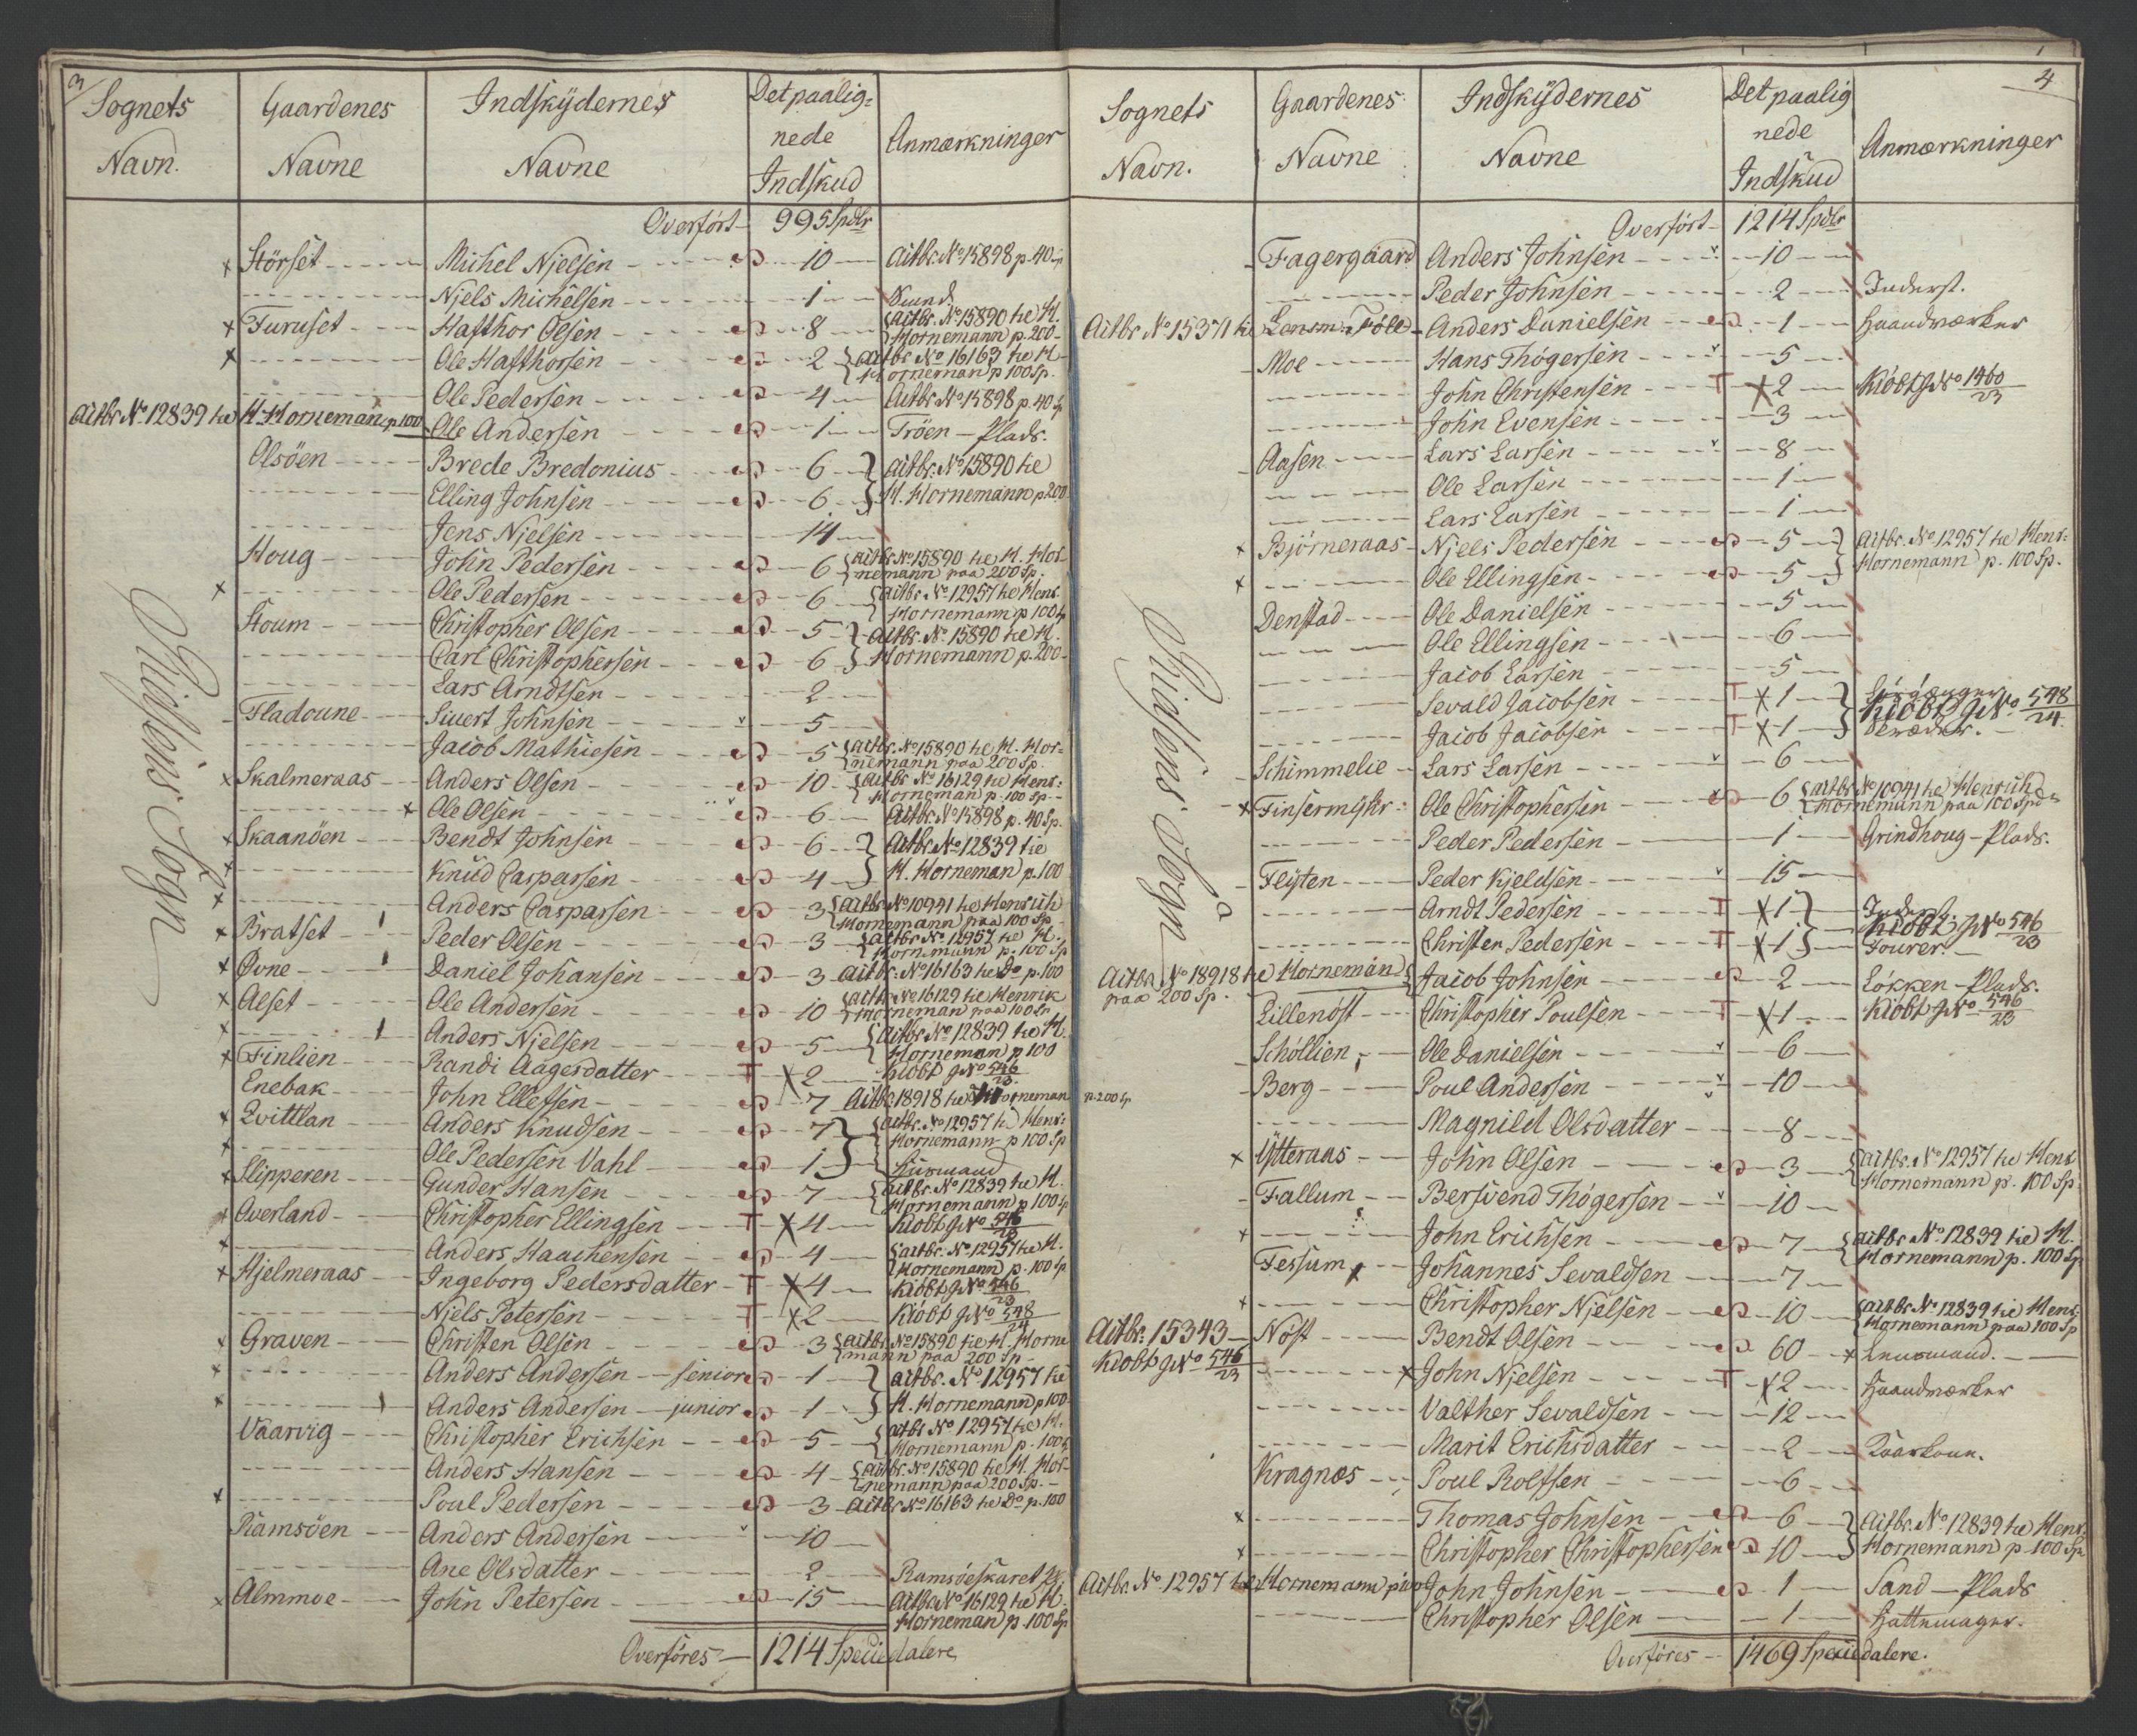 3
Sognets Navn.
Gaardenes Navne
Indskÿdernes Navne
Det paalig= nede Indskud
Anmærkninger
Rissens Sogn
Overført - 995 Spdlr
Störset - Michel Njelsen - 10 - Actbr. No 15898 p. 40
Njels Michelsen - 1
Furuset - Hafthor Olsen - 8 - Actbr. No 15890 til H. Hornemann p. 200
Ole Hafthorsen - 2 - Actbr No 16163 til H. Horneman p 100 Sp.
Ole Pedersen - 4 - Actbr No 15898 p. 40 Sp
Actbr No 12839 til H. Horneman p 100 Ole Andersen - 1 - Tröen - Plads.
Olsöen - Brede Bredonius - 6 - Actbr. No 15890 til
Elling Johnsen - 6 - H. Hornemann p 200
Jens Njelsen - 14
Houg - John Pedersen - 6 - Actbr No 15890 til H. Hornemann paa 200 Sp.
Ole Pedersen - 6 - Actbr. No 12957 til Henr. Hornemann p 100 Sp
Stoum - Christopher Olsen - 5 - Actbr. No 15890 til H.
Carl Christophersen - 6 - Hornemann p. 200
Lars Arndtsen - 2
Fladoune - Siuert Johnsen - 5
Jacob Mathiesen - 5 - Actbr. No 15890 til H. Hornemann paa 200 Sp.
Skalmeraas - Anders Olsen - 10 - Actbr No 16129 til Henr: Horneman p. 100 Sp.
Ole Olsen - 6 - Actbr No 15898 p. 40 Sp.
Skaanöen - Bendt Johnsen - 6 - Actbr No 12839 til
Knud Caspersen - 4 - H. Horneman p. 100
Anders Casparsen - 3 - Actbr No 10941 til Henrich Hornemann paa 100 Sp
Bratset - Peder Olsen - 3 - Actbr No 12957 til H. Hornemann p. 100 Sp
Øvne - Daniel Johansen - 3 - Actbr. No 16163 til Do p. 100
Alset - Ole Andersen - 10 - Actbr No 16129 til Henrik Horneman paa 100 Sp
Anders Njelsen - 5 - Actbr No 12839 til H. Horneman p 100
Finlien - Randi Aagesdatter - T X 2 - Kiöbt gNo 546/23
Enebak - John Ellefsen - 7 - Actbr 18918 til Horneman p. 200 Sp
Qvittlan - Anders Knudsen - 7 - Actbr. No 12957 til Henr: Hornemann p 100 Sp
Ole Pedersen Vahl - 1 - Huusmand
Slipperen - Gunder Hansen - 7 - Actbr. No 12839 til H. Hornemann p. 100 Sp
Overland - Christopher Ellingsen - T X 4 - Kiöbt gNo 546/23
Anders Haachensen - 4 - Actbr. No 12957 til H. Hornemann p. 100 Sp
Hjelmeraas - Ingeborg Pedersdatter - T X 4 - Kiöbt gNo 546/23
Njels Petersen - T X 2 - Kiöbt gNo 548/24
Graven - Christen Olsen - 3 - Actbr No 15890 til H. Hornemann paa 200 Sp
Anders Andersen - senior - 1 - Actbr. No 12957 til
Anders Andersen - junior - 1 - H. Hornemann p 100
Vaarvig - Christopher Erichsen - 5 - Actbr No 12957 til H. Hornemann p. 100 Sp
Anders Hansen - 4 - Actbr. No 15890 til H. Hornemann paa 200 Sp.
Poul Pedersen - 3 - Actbr No 16163 til Do p. 100
Ramsöen - Anders Andersen - 10
Ane Olsdatter - 2 - Ramsöeskaret
Almmoe - John Petersen - 15 - Actbr No 16129 til H. Horneman p. 100 Sp
Overföres - 1214 Speciedalere
4
Sognets Navn.
Gaardenes Navne
Indskÿdernes Navne
Det paalig nede Indskud
Anmærkninger
Rissens Sogn
Overført - 1214 Spdlr
Fagergaard - Anders Johnsen - 10
Peder Johnsen - 2 - Inderst.
Actbr No 15371 til Lensm: Föle - Anders Danielsen - 1 - Haandværker
Moe - Hans Thögersen - 5
John Christensen - T X 2 - Kiöbt gNo 1460/23
John Evensen - 3
Aasen - Lars Larsen - 8
Ole Larsen - 1
Lars Larsen - 1
Björneraas - Njels Pedersen - 5 - Actbr. No 12957 til Henr:
Ole Ellingsen - 5 - Hornemann p. 100 Sp.
Denstad - Ole Danielsen - 5
Ole Ellingsen - 6
Jacob Larsen - 5
Sevald Jacobsen - T X 1 - Kiöbt gNo 548/24
Jacob Jacobsen - T X 1
Schimmelie - Lars Larsen - 6
Finsermÿhr - Ole Christophersen - 6 - Actbr No 10941 til Henrich Hornemann paa 100 Spd
Peder Pedersen - 1 - Grindhoug - Plads.
Flÿten - Peder Kjeldsen - 15
Arndt Pedersen - T X 1 - Inderst. Kiöbt gNo 546/23
Christen Pedersen - T X 1 - Fourer.
Actbr No 18918 til Horneman paa 200 Sp. Jacob Johnsen - 2 - Lökken - Plads.
Lillenöst - Christopher Poulsen - T X 1 - Kiöbt gNo 546/23
Schöllien - Ole Danielsen - 6
Berg - Poul Andersen - 10
Magnild Olsdatter - 8
Ytteraas - John Olsen - 3 - Actbr. No 12957 til Henr. Hornemann p. 100 Sp.
Fallum - Bersvend Thögersen - 10
John Erichsen - 7 - Actbr No 12839 til H. Hornemann p. 100 Sp
Fessum - Johannes Sevaldsen - 7
Christopher Njelsen - 10 - Actbr No 12839 til Henr: Hornemann paa 100 Sp
Actbr. 15343 - Nöst - Bendt Olsen - 60 - Lensmand.
Kiöbt gNo 546/23 - John Njelsen - T X 2 - Haandværker
Valther Sevaldsen - 12
Marit Erichsdatter - 2 - Kaarkone.
Kragnæs - Poul Rolfsen - 6
Thomas Johnsen - 6 - Actbr. No 12839 til Henr:
Christopher Christophersen - 10 - Hornemann p 100 Sp
Actbr. No 12957 til Hornemann p 100 John Johnsen - 1 - Sand - Plads
Christopher Olsen - 1 - Hattemager.
Overföres - 1469 Speciedalere.